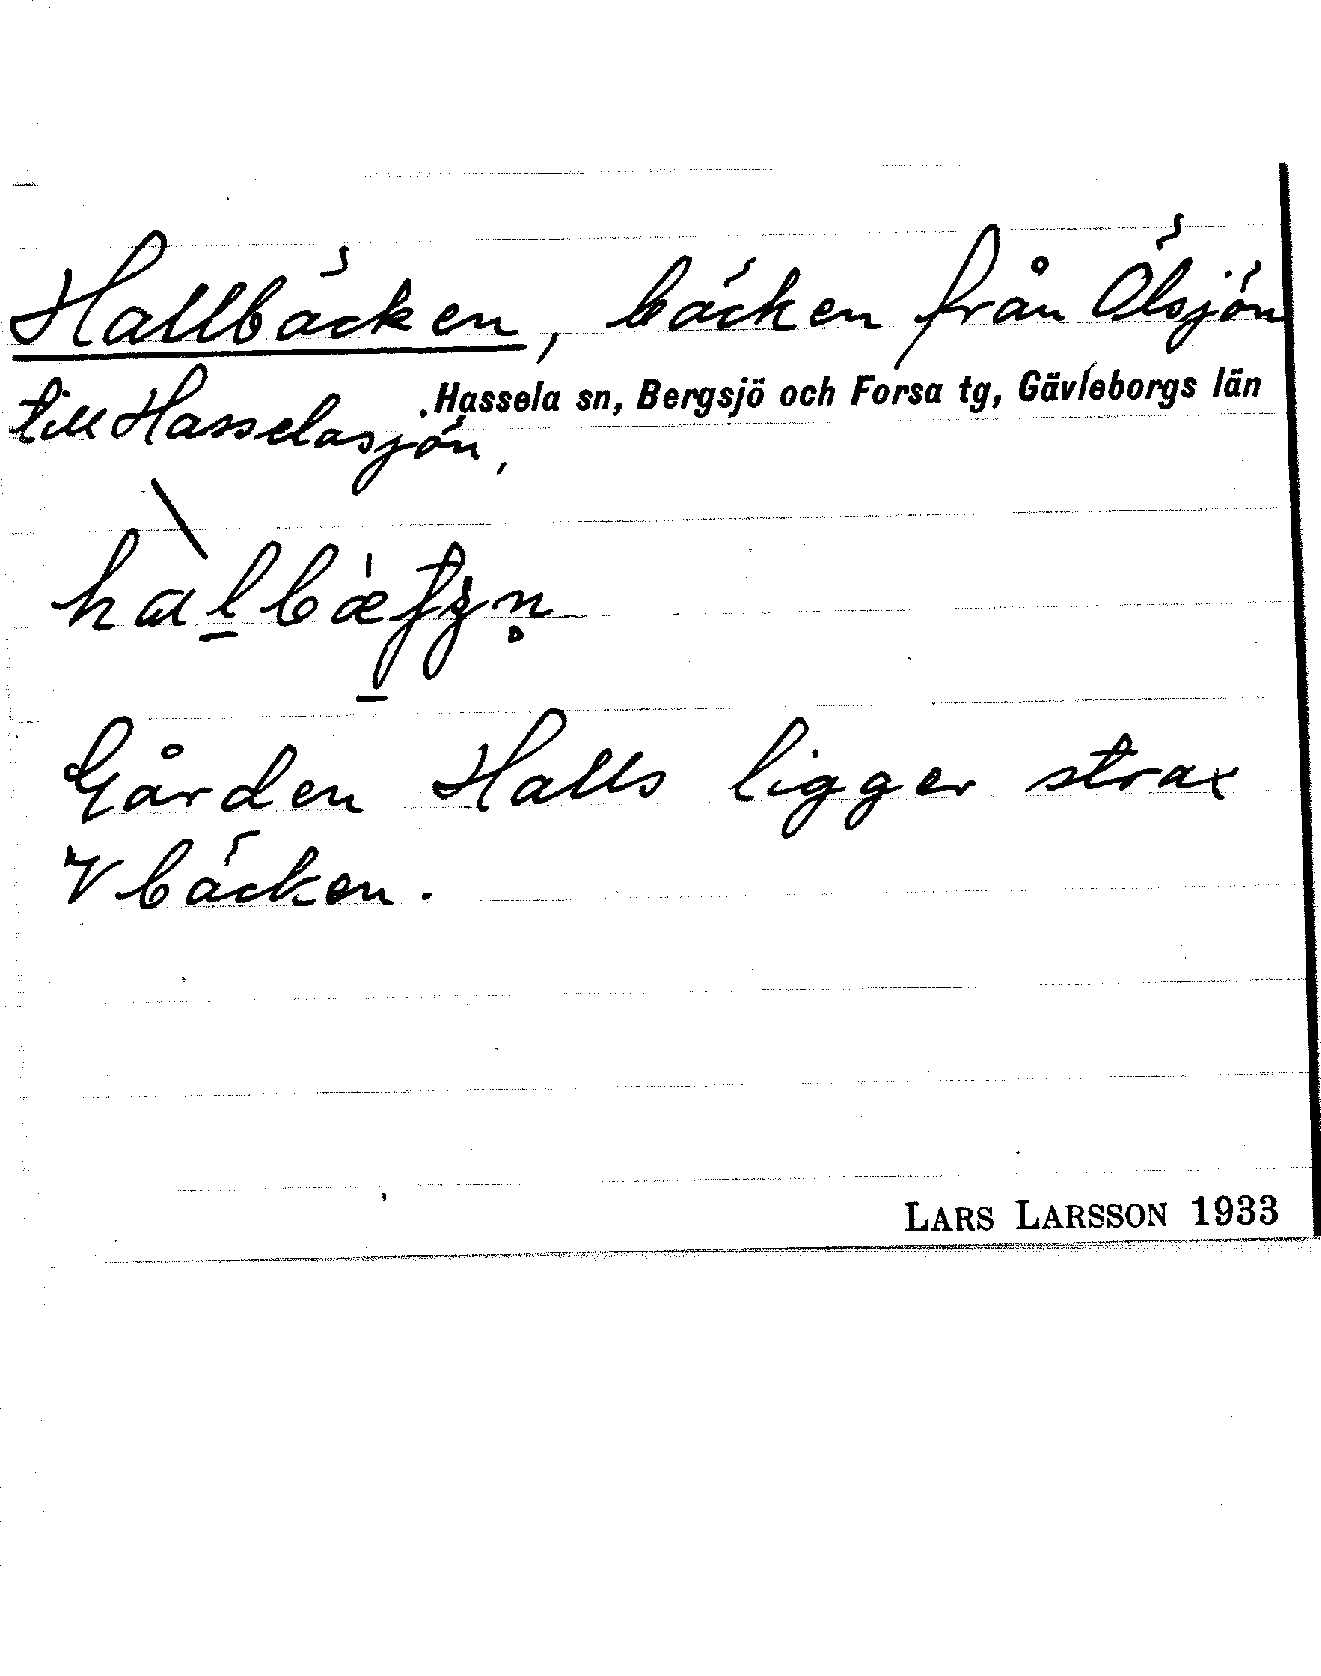 Hallbäcken, bäcken från Ölsjön
till Hasselasjön,
Hassela sn, Bergsjö och Forsa tg, Gävleborgs län
Gården Halls ligger strax
V bäcken.
LARS LARSSON 1933